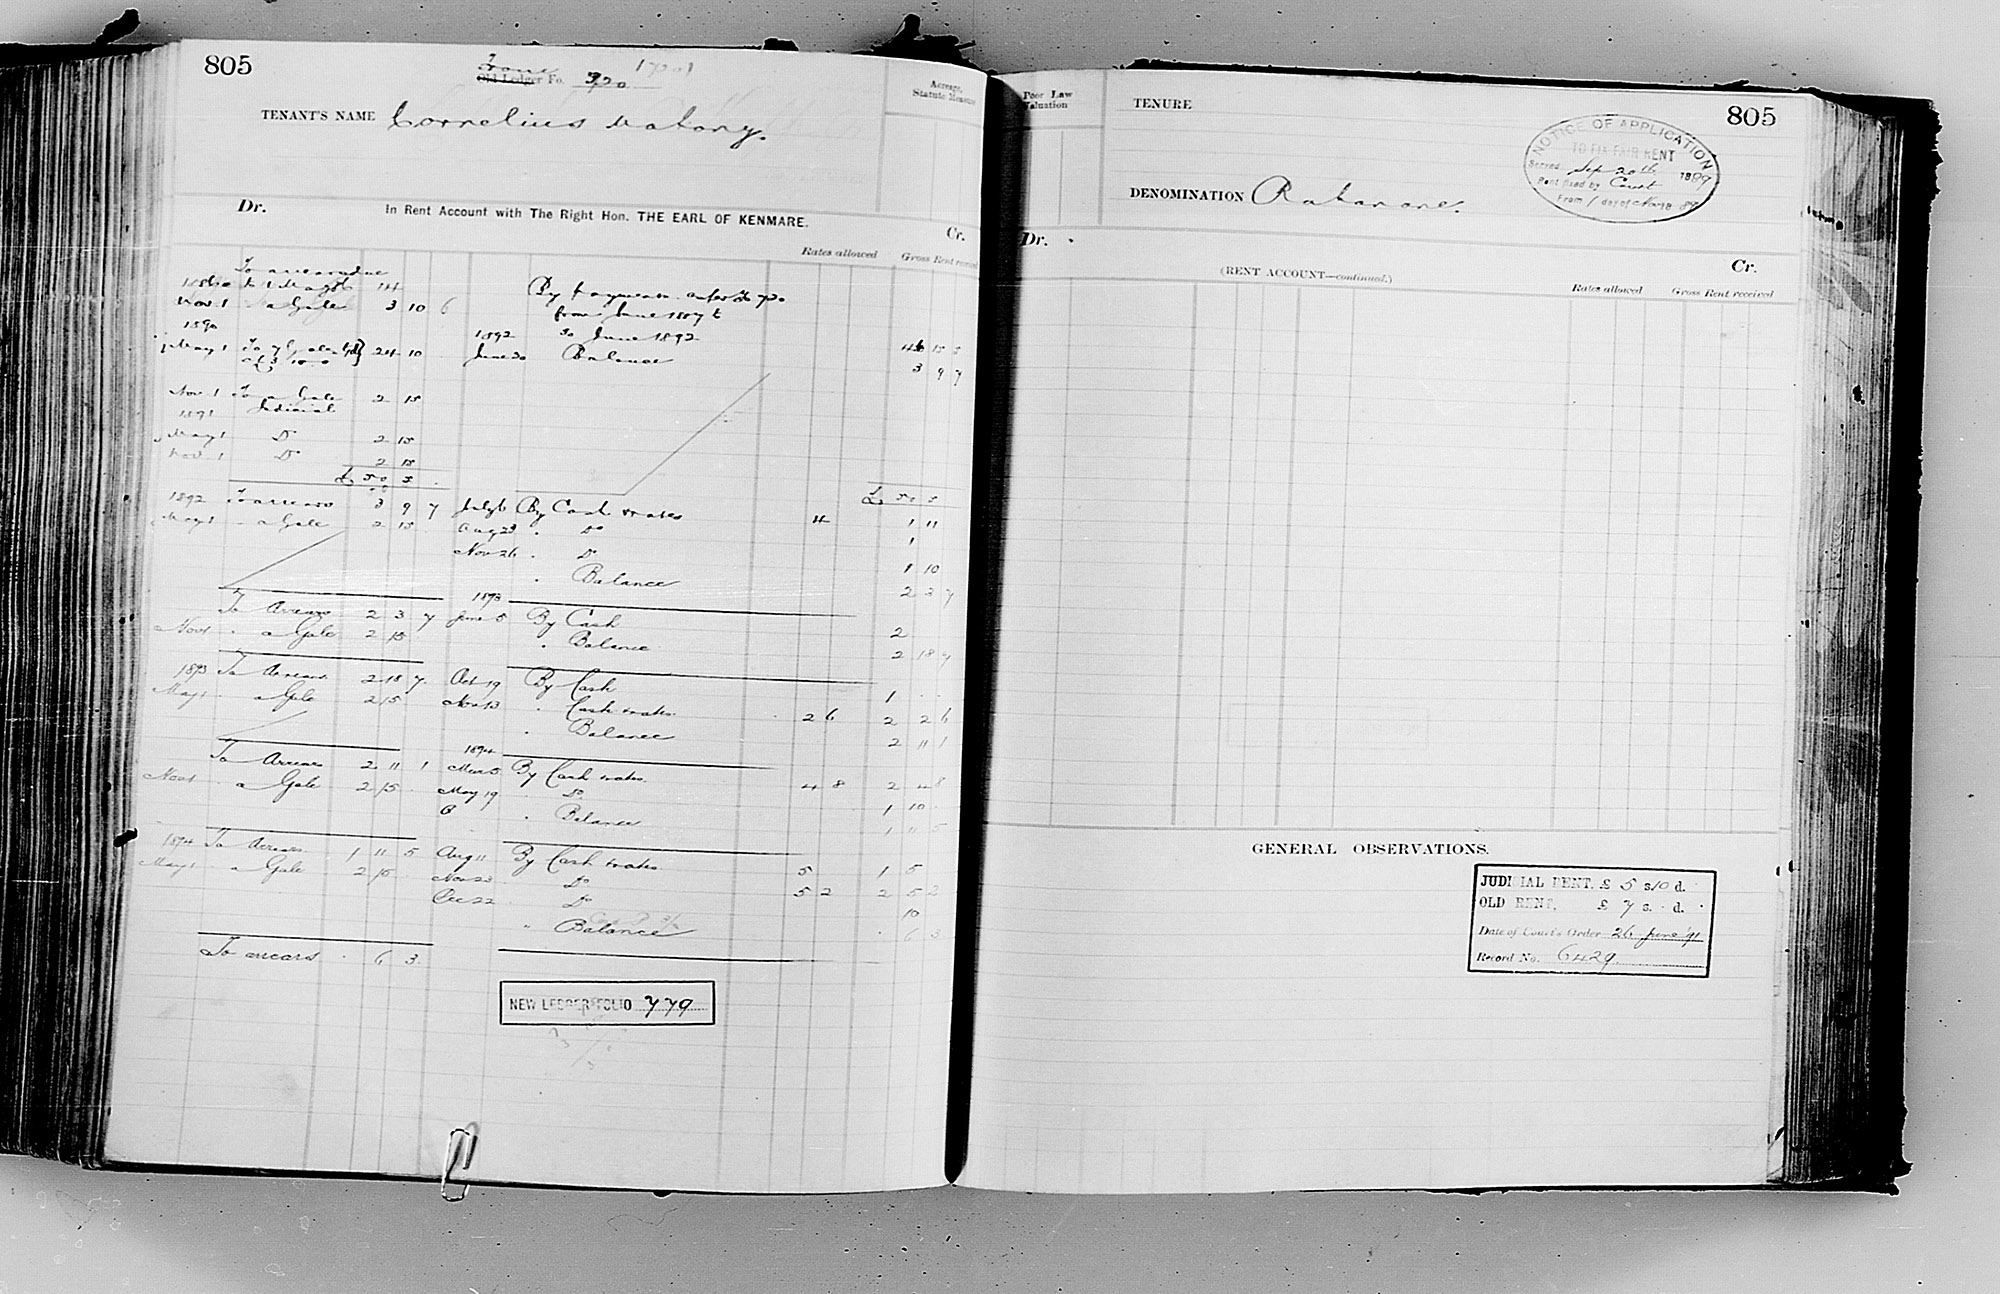 805
From
Old Ledger Fo. 720
TENANT'S NAME Cornelius Mahony.
Acreage, Statute Measure
Dr. In Rent Account with The Right Hon. THE EARL OF KENMARE. Cr.
Rates allowed Gross Rent received
To arrears due
to 1 May 86 14
Nov. 1 a Gale 3 10 6 By payments
from June 1887 to
1890 1892 30 June 1892 15 5
May 1 24 10 June 30 Balance 3 9 7
Nov. 1 To a Gale 2 15
1891 Judicial
May 1 Do 2 15
Nov. 1 Do 2 15
£ 50 5 £ 50 5
1892 To arrears 3 9 7 July 6 By Cash & rates 4 1 11
May 1 a Gale 2 15 Aug 23 " Do 1
Nov 26 " Do 1 10
" Balance 2 3 7
1893
To Arrears 2 3 7 June 5 By Cash 2
Nov 1 " a Gale 2 15 " Balance 2 18 7
1893 To Arrears 2 18 7 Oct 19 By Cash 1
May 1 a Gale 2 15 Nov 13 " Cash & rates 2 6 2 2 6
" Balance 2 11 1
1894
To Arrears 2 11 1 Mar 5 By Cash & rates 4 8 2 4 8
Nov 1 a Gale 2 15 May 19 Do 1 10
" Balance 1 11 5
1894 To Arrears 1 11 5 Aug 11 By Cash & rates 5 1 5
May 1 a Gale 2 15 Nov 23 Do 5 2 2 5 2
Dec 22 Do 10
" Balance 6 3
To arrears 6 3
NEW LEDGER FOLIO 779
Poor Law Valuation
TENURE
805
NOTICE OF APPLICATION
TO FIX FAIR RENT
Served Sep 20th 1889
Rent fixed by Court
From 1 day of Nov 18 89
DENOMINATION Rahanane.
Dr. Cr.
(RENT ACCOUNT—continued.)
Rates allowed Gross Rent received
GENERAL OBSERVATIONS.
JUDICIAL RENT, £ 5 s. 10 d.
OLD RENT, £ 7 s. d.
Date of Court's Order 26 June '91
Record No. 6429